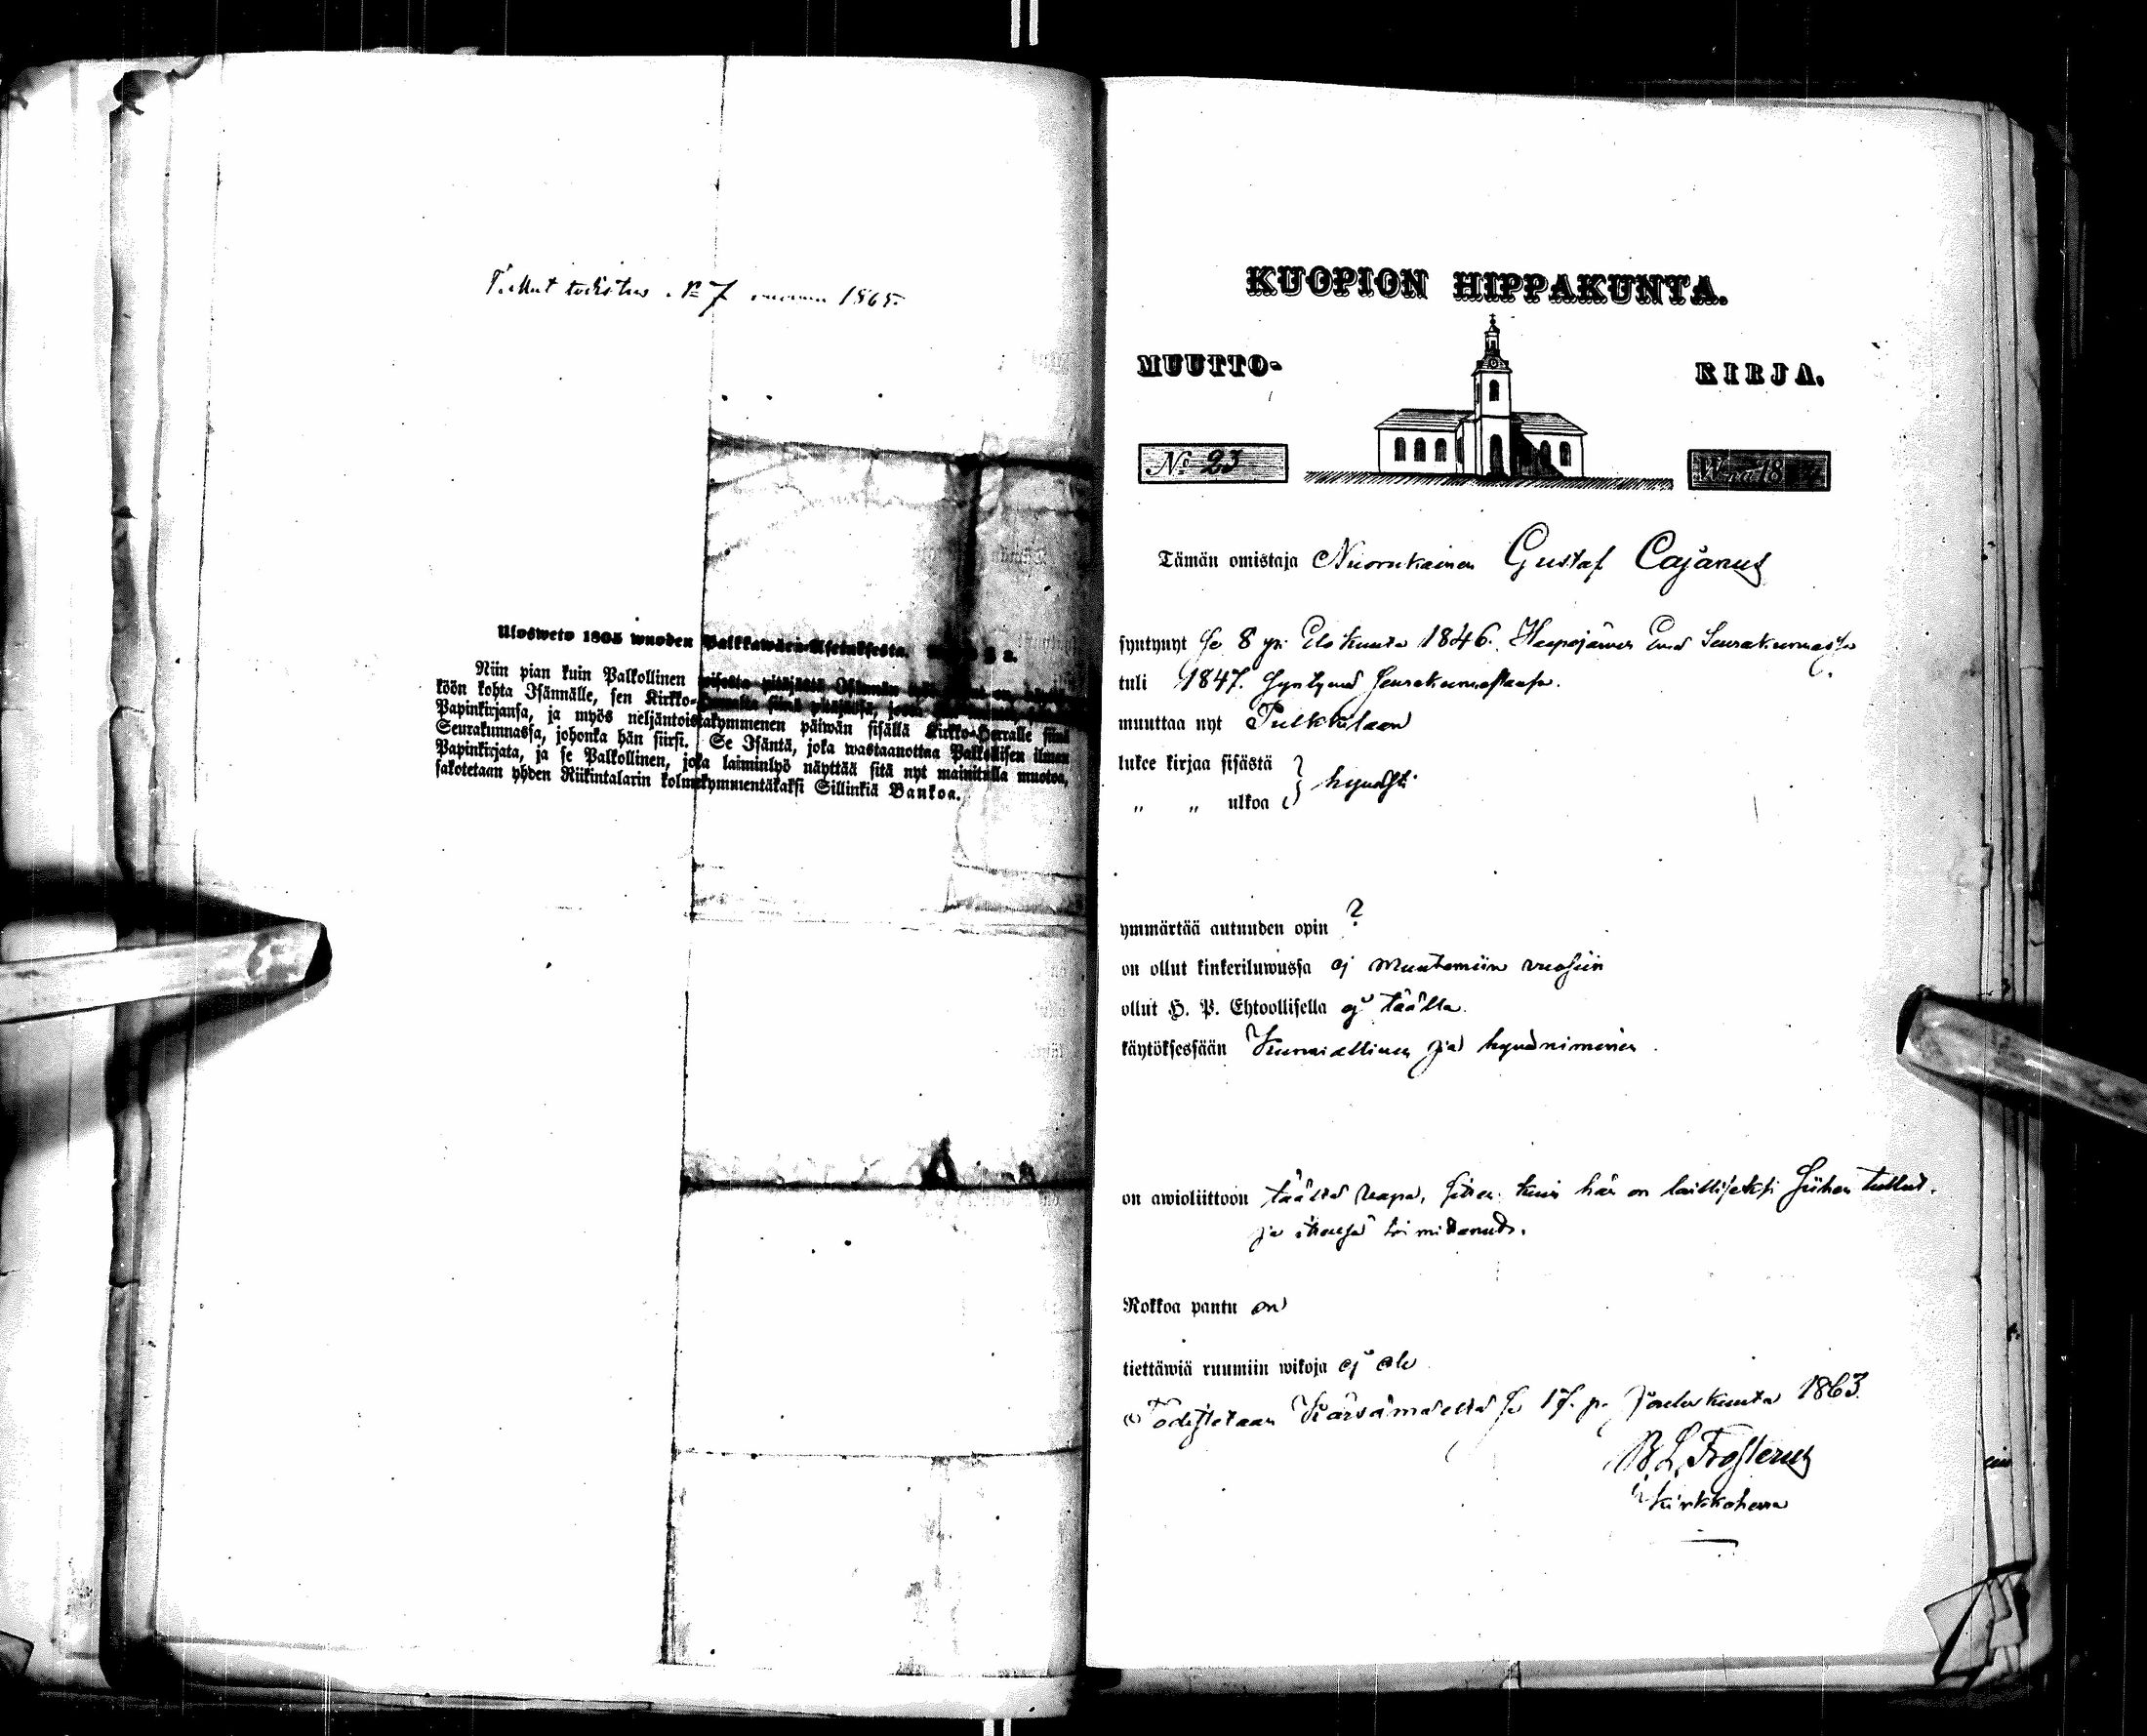 todistus No 7 1865.
Ulosweto 1805 wuoden Palkkawäen-Asetuksesta. § 2.
Niin pian kuin Palkollinen
köön kohta Isännälle, sen Kirkko-
Papinkirjansa, ja myös neljäntoistakymmenen päiwän sisällä Kirkko-Herralle siinä
Seurakunnassa, johonka hän siirsi. Se Isäntä, joka wastaanottaa Palkollisen ilman
Papinkirjata, ja se Palkollinen, joka laiminlyö näyttää sitä nyt mainitulla muotoa,
sakotetaan yhden Riikintalarin kolmekymmentäkaksi Sillinkiä Bankoa.
KUOPION HIPPAKUNTA.
MUUTTO- KIRJA.
No 23 W:na 18
Tämän omistaja Nuorukainen Gustaf Cajanus
syntynyt se 8 p. Elokuuta 1846. Haapajärven Seurakunnassa
tuli 1847. Seurakunnastansa.
muuttaa nyt Pulkkilaan
lukee kirjaa sisästä } hyvästi
„ „ ulkoa
ymmärtää autuuden opin ?
on ollut kinkeriluwussa ej muutamiin vuosiin
ollut H. P. Ehtoollisella ej täällä.
käytöksessään Kunniallinen ja hyväniminen.
on awioliittoon täältä vapa, sitten kuin hän on lailliseksi siihen tullut.
ja itsensä toimittanut.
Rokkoa pantu on
tiettäwiä ruumiin wikoja ej ole
Todistetaan Kärsämäeltä se 17. p. Jouluskuuta 1863.
B. L. Frosterus
Kirkkoherra